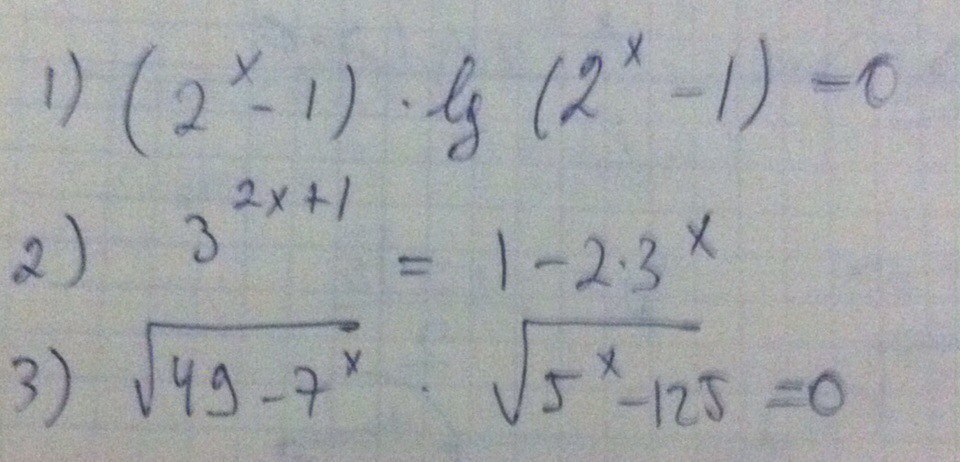 1) (2^x - 1) · lg (2^x - 1) = 0
2) 3^{2x+1} = 1 - 2·3^x
3) √(49 - 7^x) · √(5^x - 125) = 0